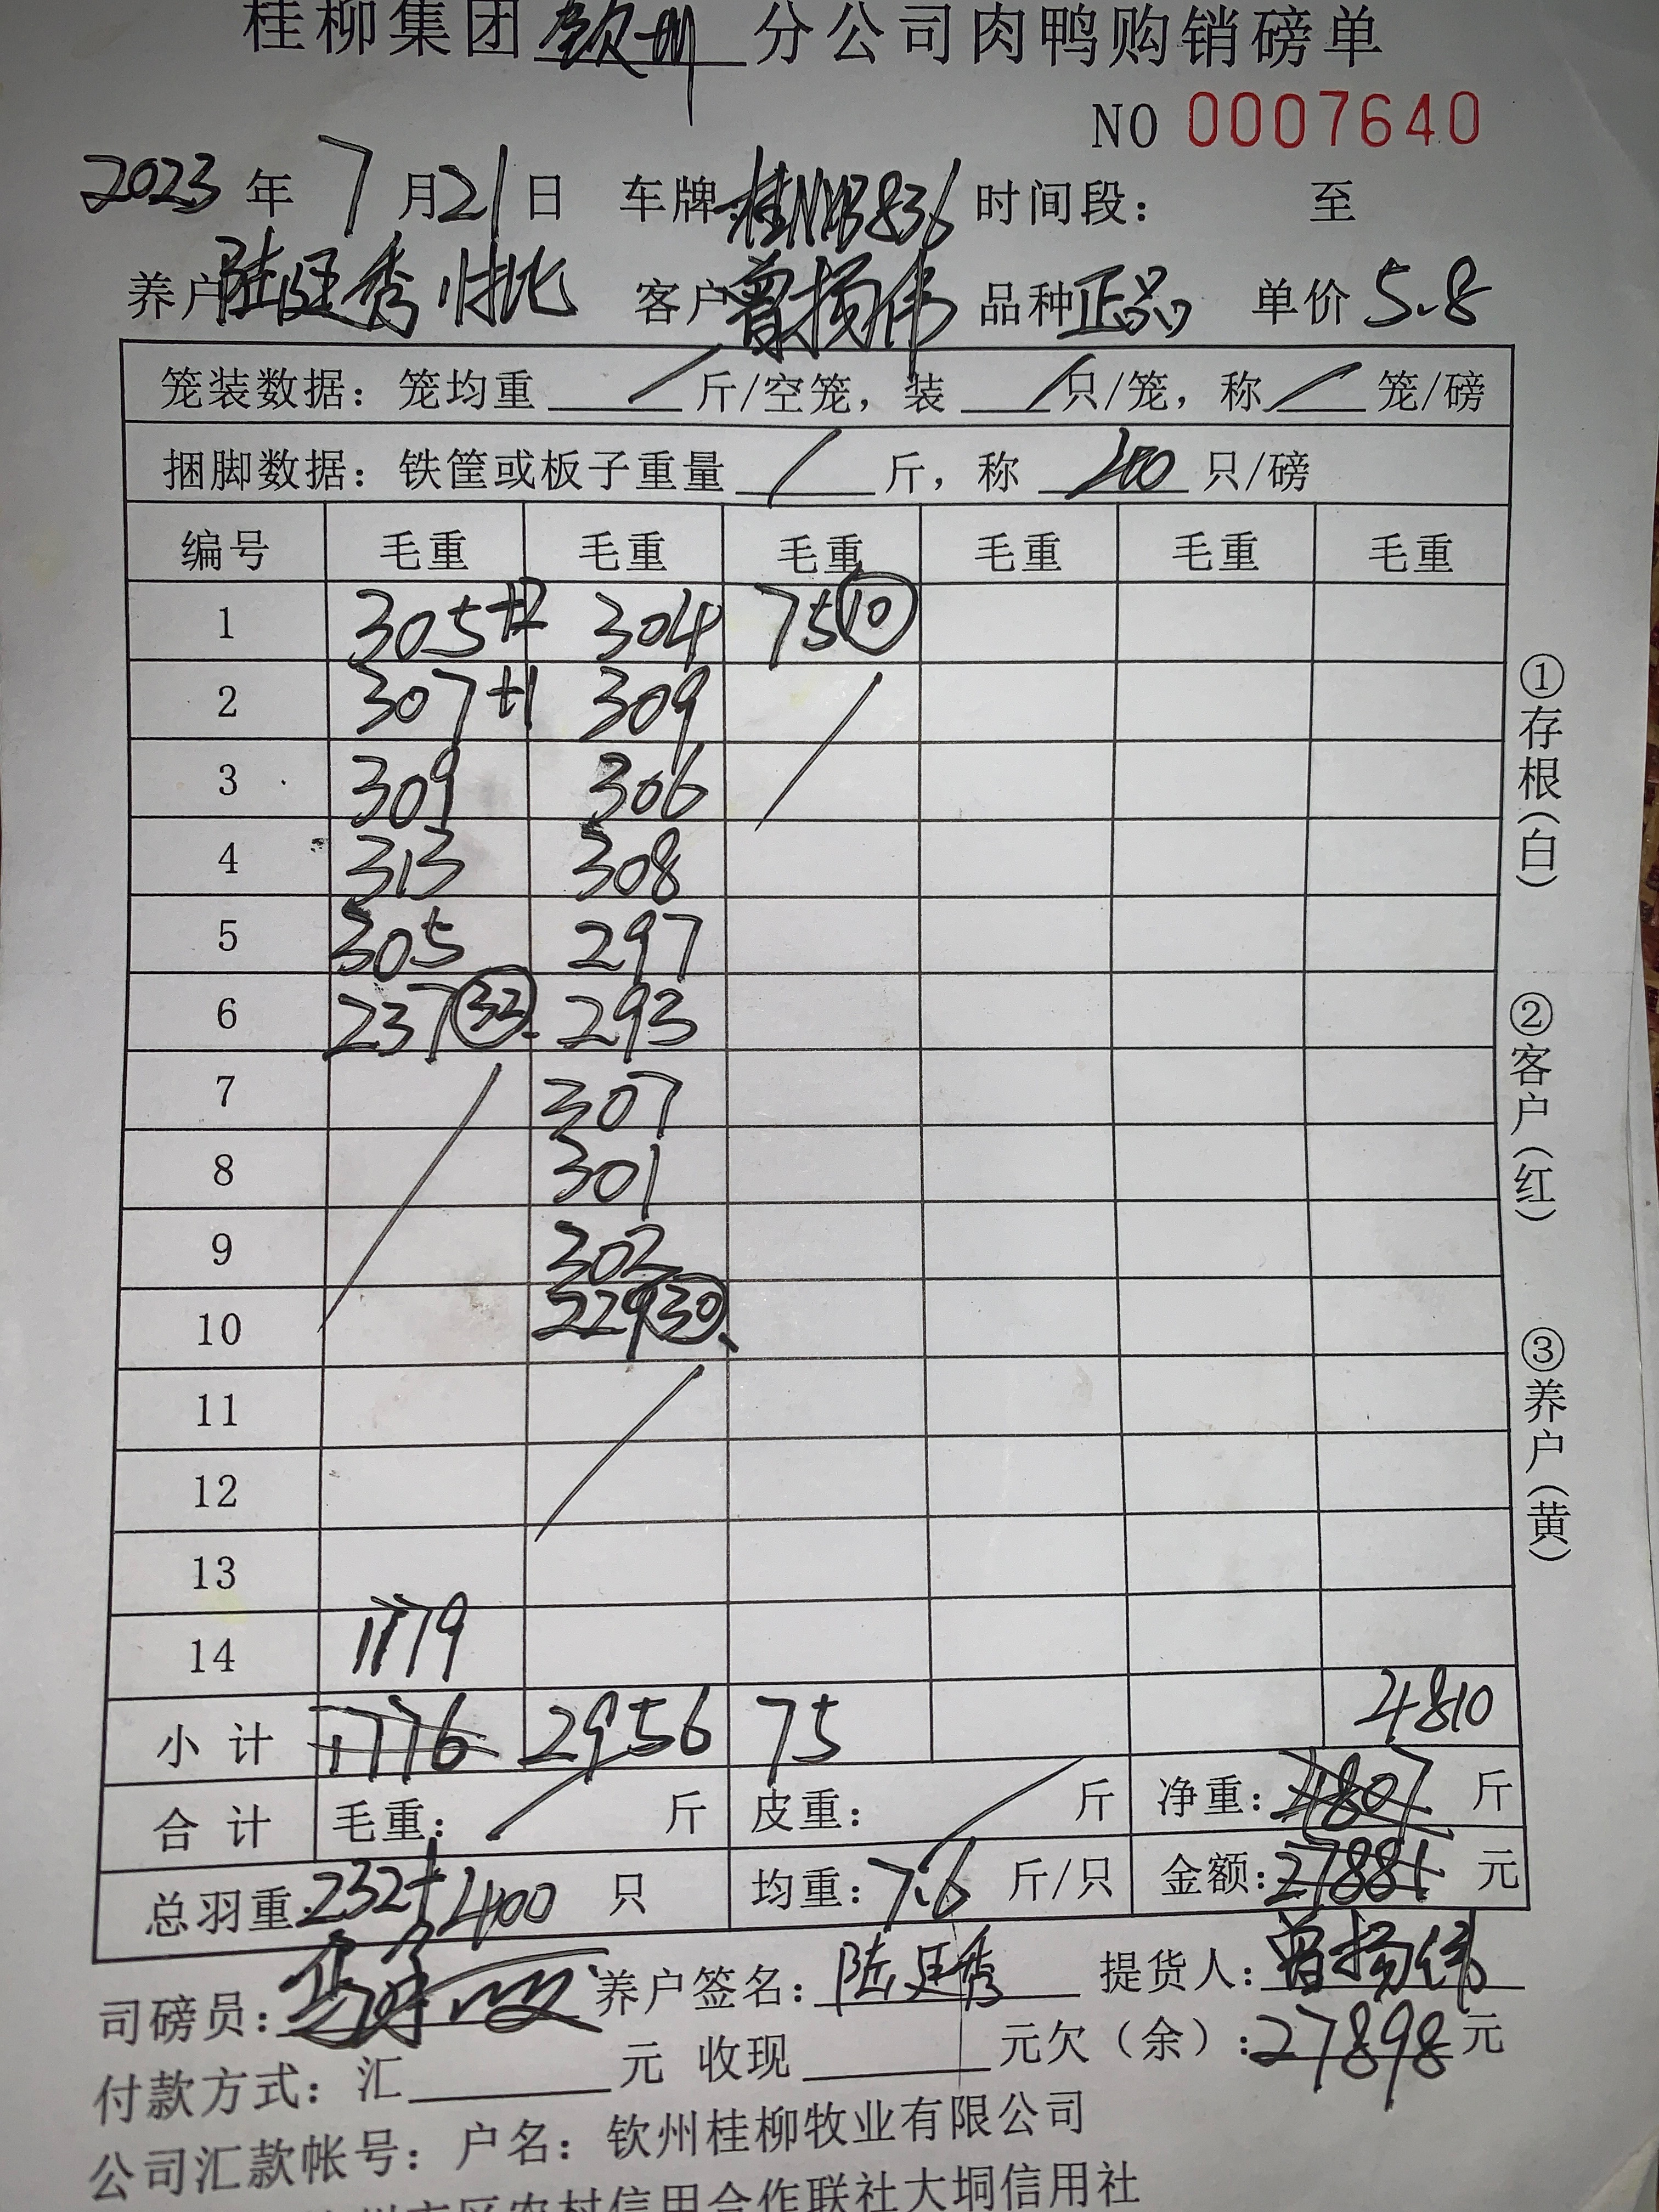 桂柳集团 钦州 分公司肉鸭购销磅单
NO 0007640
2023 年 7 月 21 日 车牌: 桂N 836 时间段： 至
养户 陆廷秀 客户 曾扬伟 品种 正品 单价 5.8
笼装数据：笼均重 / 斤/空笼，装 / 只/笼，称 / 笼/磅
捆脚数据：铁筐或板子重量 / 斤，称 只/磅
编号 毛重 毛重 毛重 毛重 毛重 毛重
1 305+2 304 75⑩
2 307+1 309
3 309 306
4 313 308
5 305 297
6 237㉜ 293
7 307
8 301
9 302
10 229㉚
11
12
13
14 1779
小计 1776 2956 75 4810
合计 毛重： / 斤 皮重： / 斤 净重：4807 斤
总羽重: 232+400 只 均重：7.6 斤/只 金额：27881 元
司磅员： 养户签名：陆廷秀 提货人：曾扬伟
付款方式：汇 元 收现 元欠（余）：27898 元
公司汇款帐号：户名：钦州桂柳牧业有限公司
农村信用合作联社大垌信用社
①存根（白）
②客户（红）
③养户（黄）